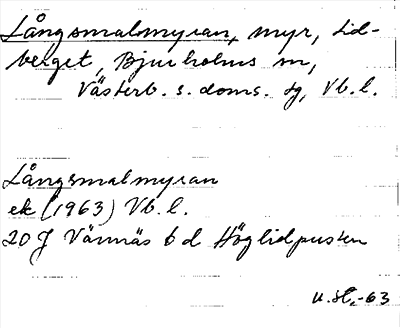 Långsmalmyran, myr, Lid-
berget, Bjurholms sn,
Västerb. s. doms. sg, Vb. l.
Långsmalmyran
ek (1963) Vb. l.
20J Vännäs 6 d Höglidpusten
U.St.-63